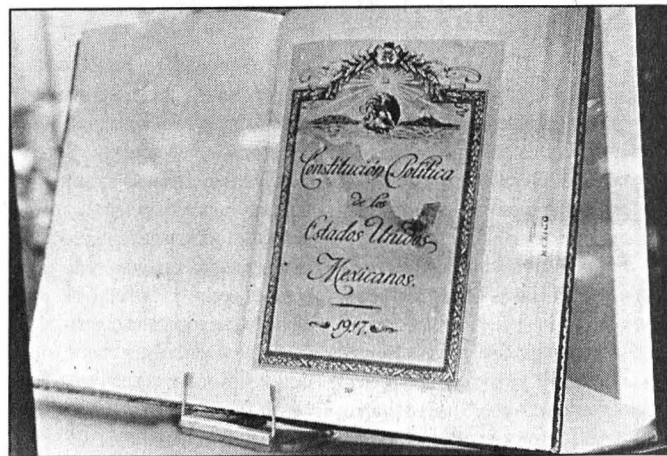 Constitución Política
de los
Estados Unidos
Mexicanos.
1917.
MEXICO